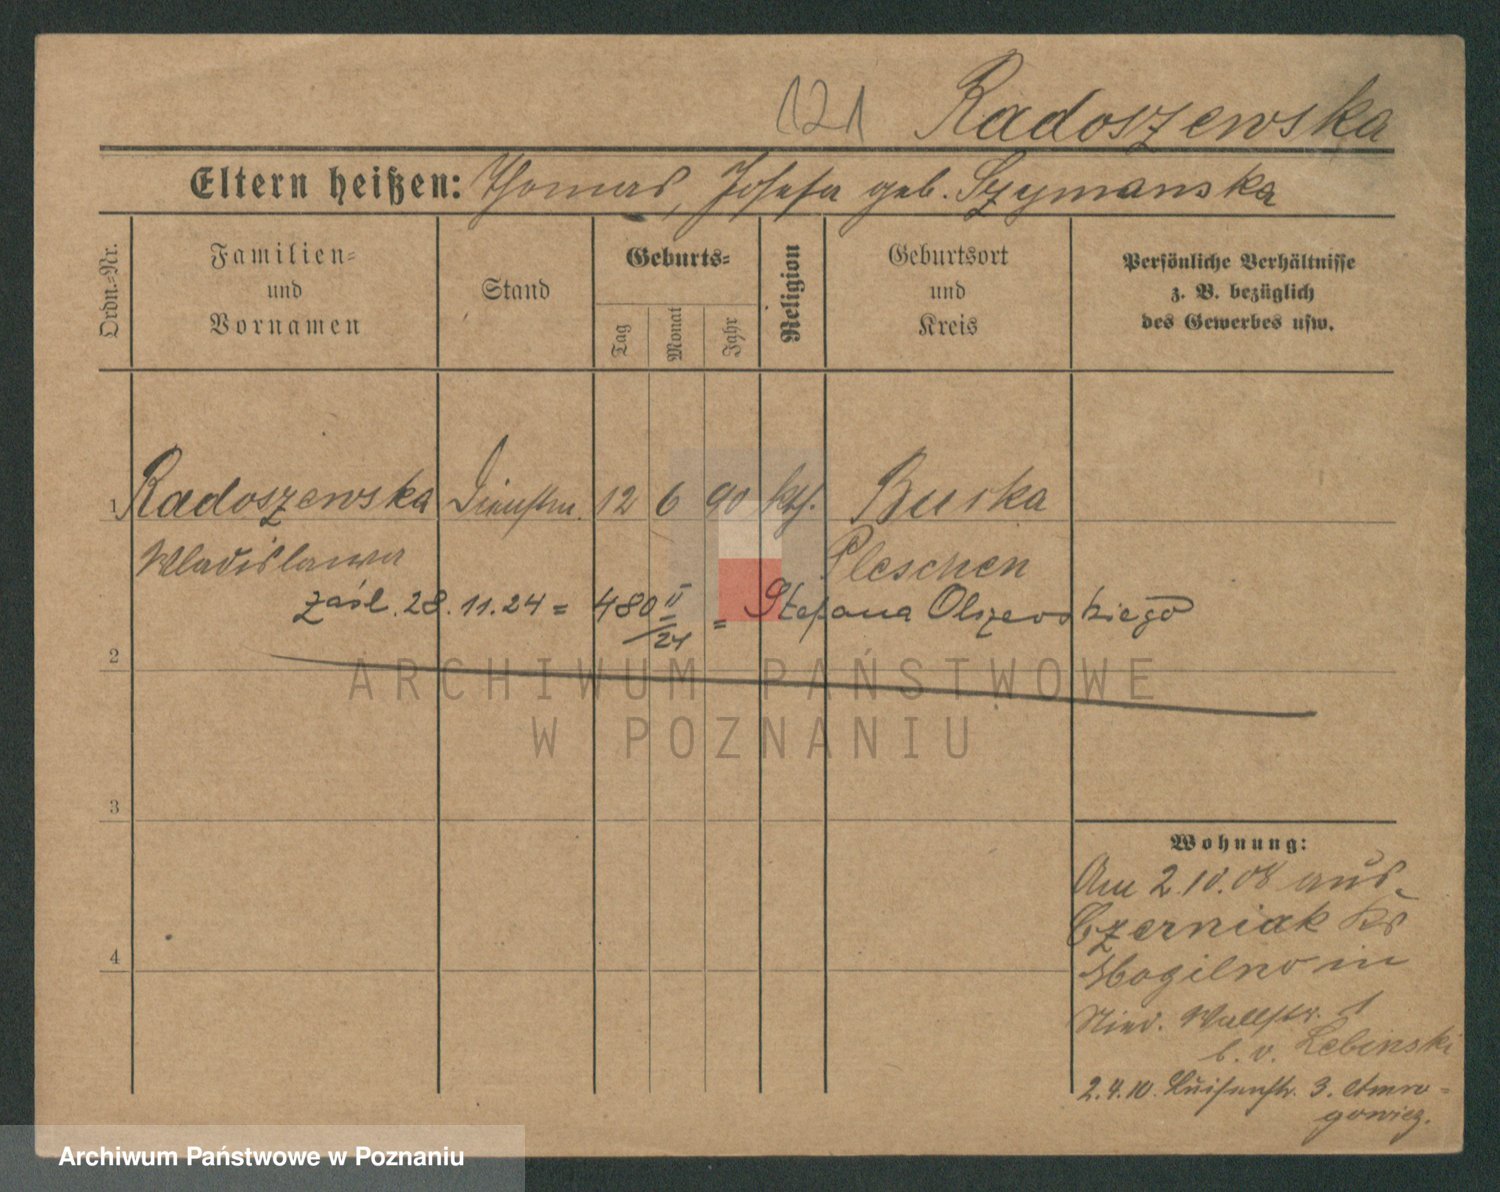 121 Radoszewska
Eltern heißen: Thomas, Josefa geb. Szymanska
Ordn.-Nr.
Familien-
und
Vornamen
Stand
Geburts-
Tag
Monat
Jahr
Religion
Geburtsort
und
Kreis
Persönliche Verhältnisse
z. B. bezüglich
des Gewerbes usw.
1 Radoszewska Dienstm. 12 6 90 kth. Buska
Wladislawa Pleschen
zaśl. 28.11.24 = 480 II/24 = Stefana Olszewskiego
2
ARCHIWUM PAŃSTWOWE
W POZNANIU
3
Wohnung:
Am 2.10.08 aus
Czerniak Kr
4
Mogilno in
Nied. Wallstr. 1
b. v. Lebinski
2.4.10. Luisenstr. 3. Amro-
gowicz.
Archiwum Państwowe w Poznaniu